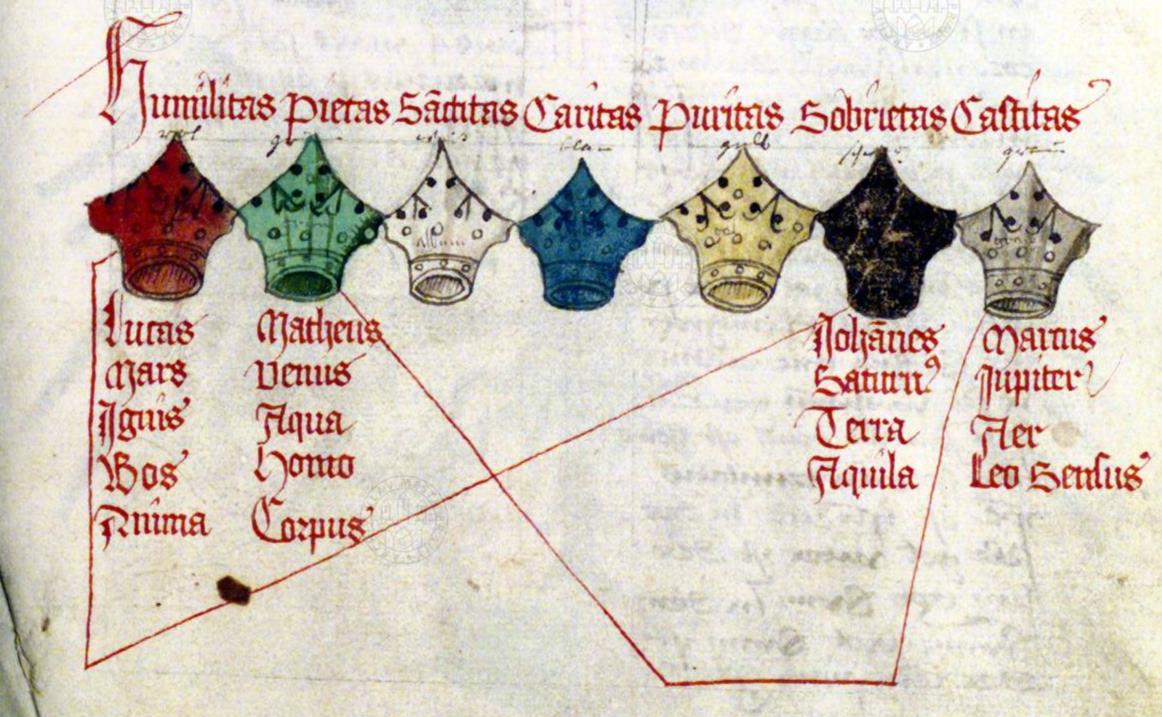 Humilitas Pietas Sāctitas Caritas Puritas Sobrietas Castitas
album
Lucas Matheus Johānes Marcus
Mars Venus Saturnꝰ Jupiter
Ignis Aqua Terra Aer
Bos Homo Aquila Leo Sensus
Anima Corpus